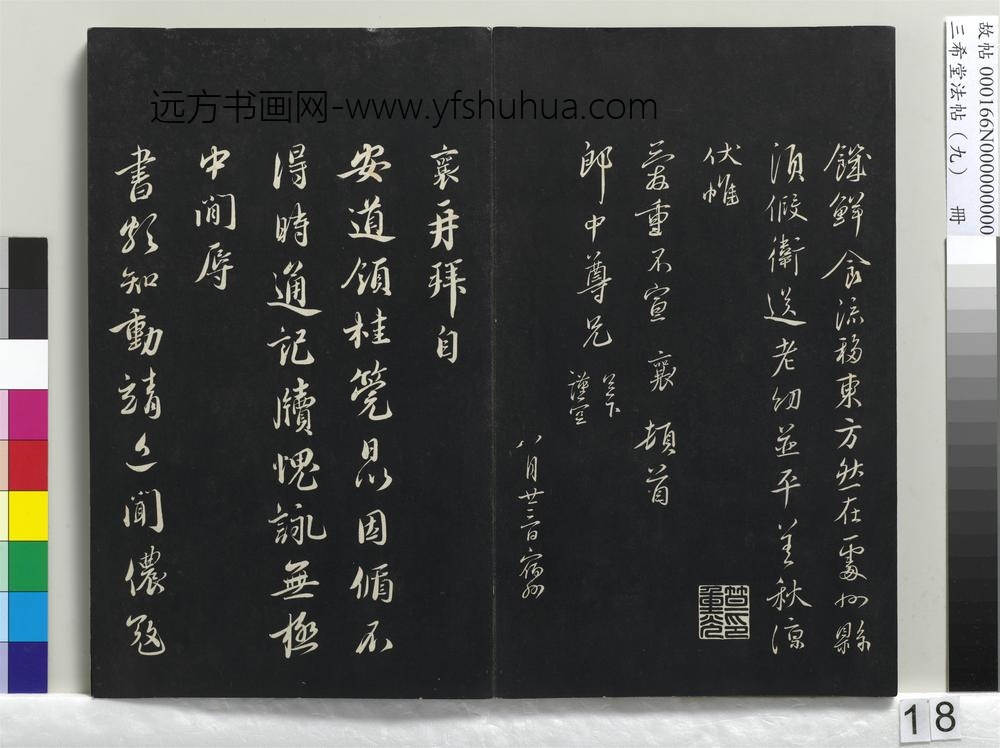 饑鮮食流移東方然在處州縣
須假衛送老幼並平善秋涼
伏惟
萬重不宣 襄 頓首
郎中尊兄
謹空
八月廿三日宿州
襄再拜自
安道領桂筦因循不
得時通記牘愧詠無極
中間辱
書頗知動靖近聞儂寇
远方书画网-www.yfshuhua.com
故帖 000166N000000000
三希堂法帖(九) 冊
18